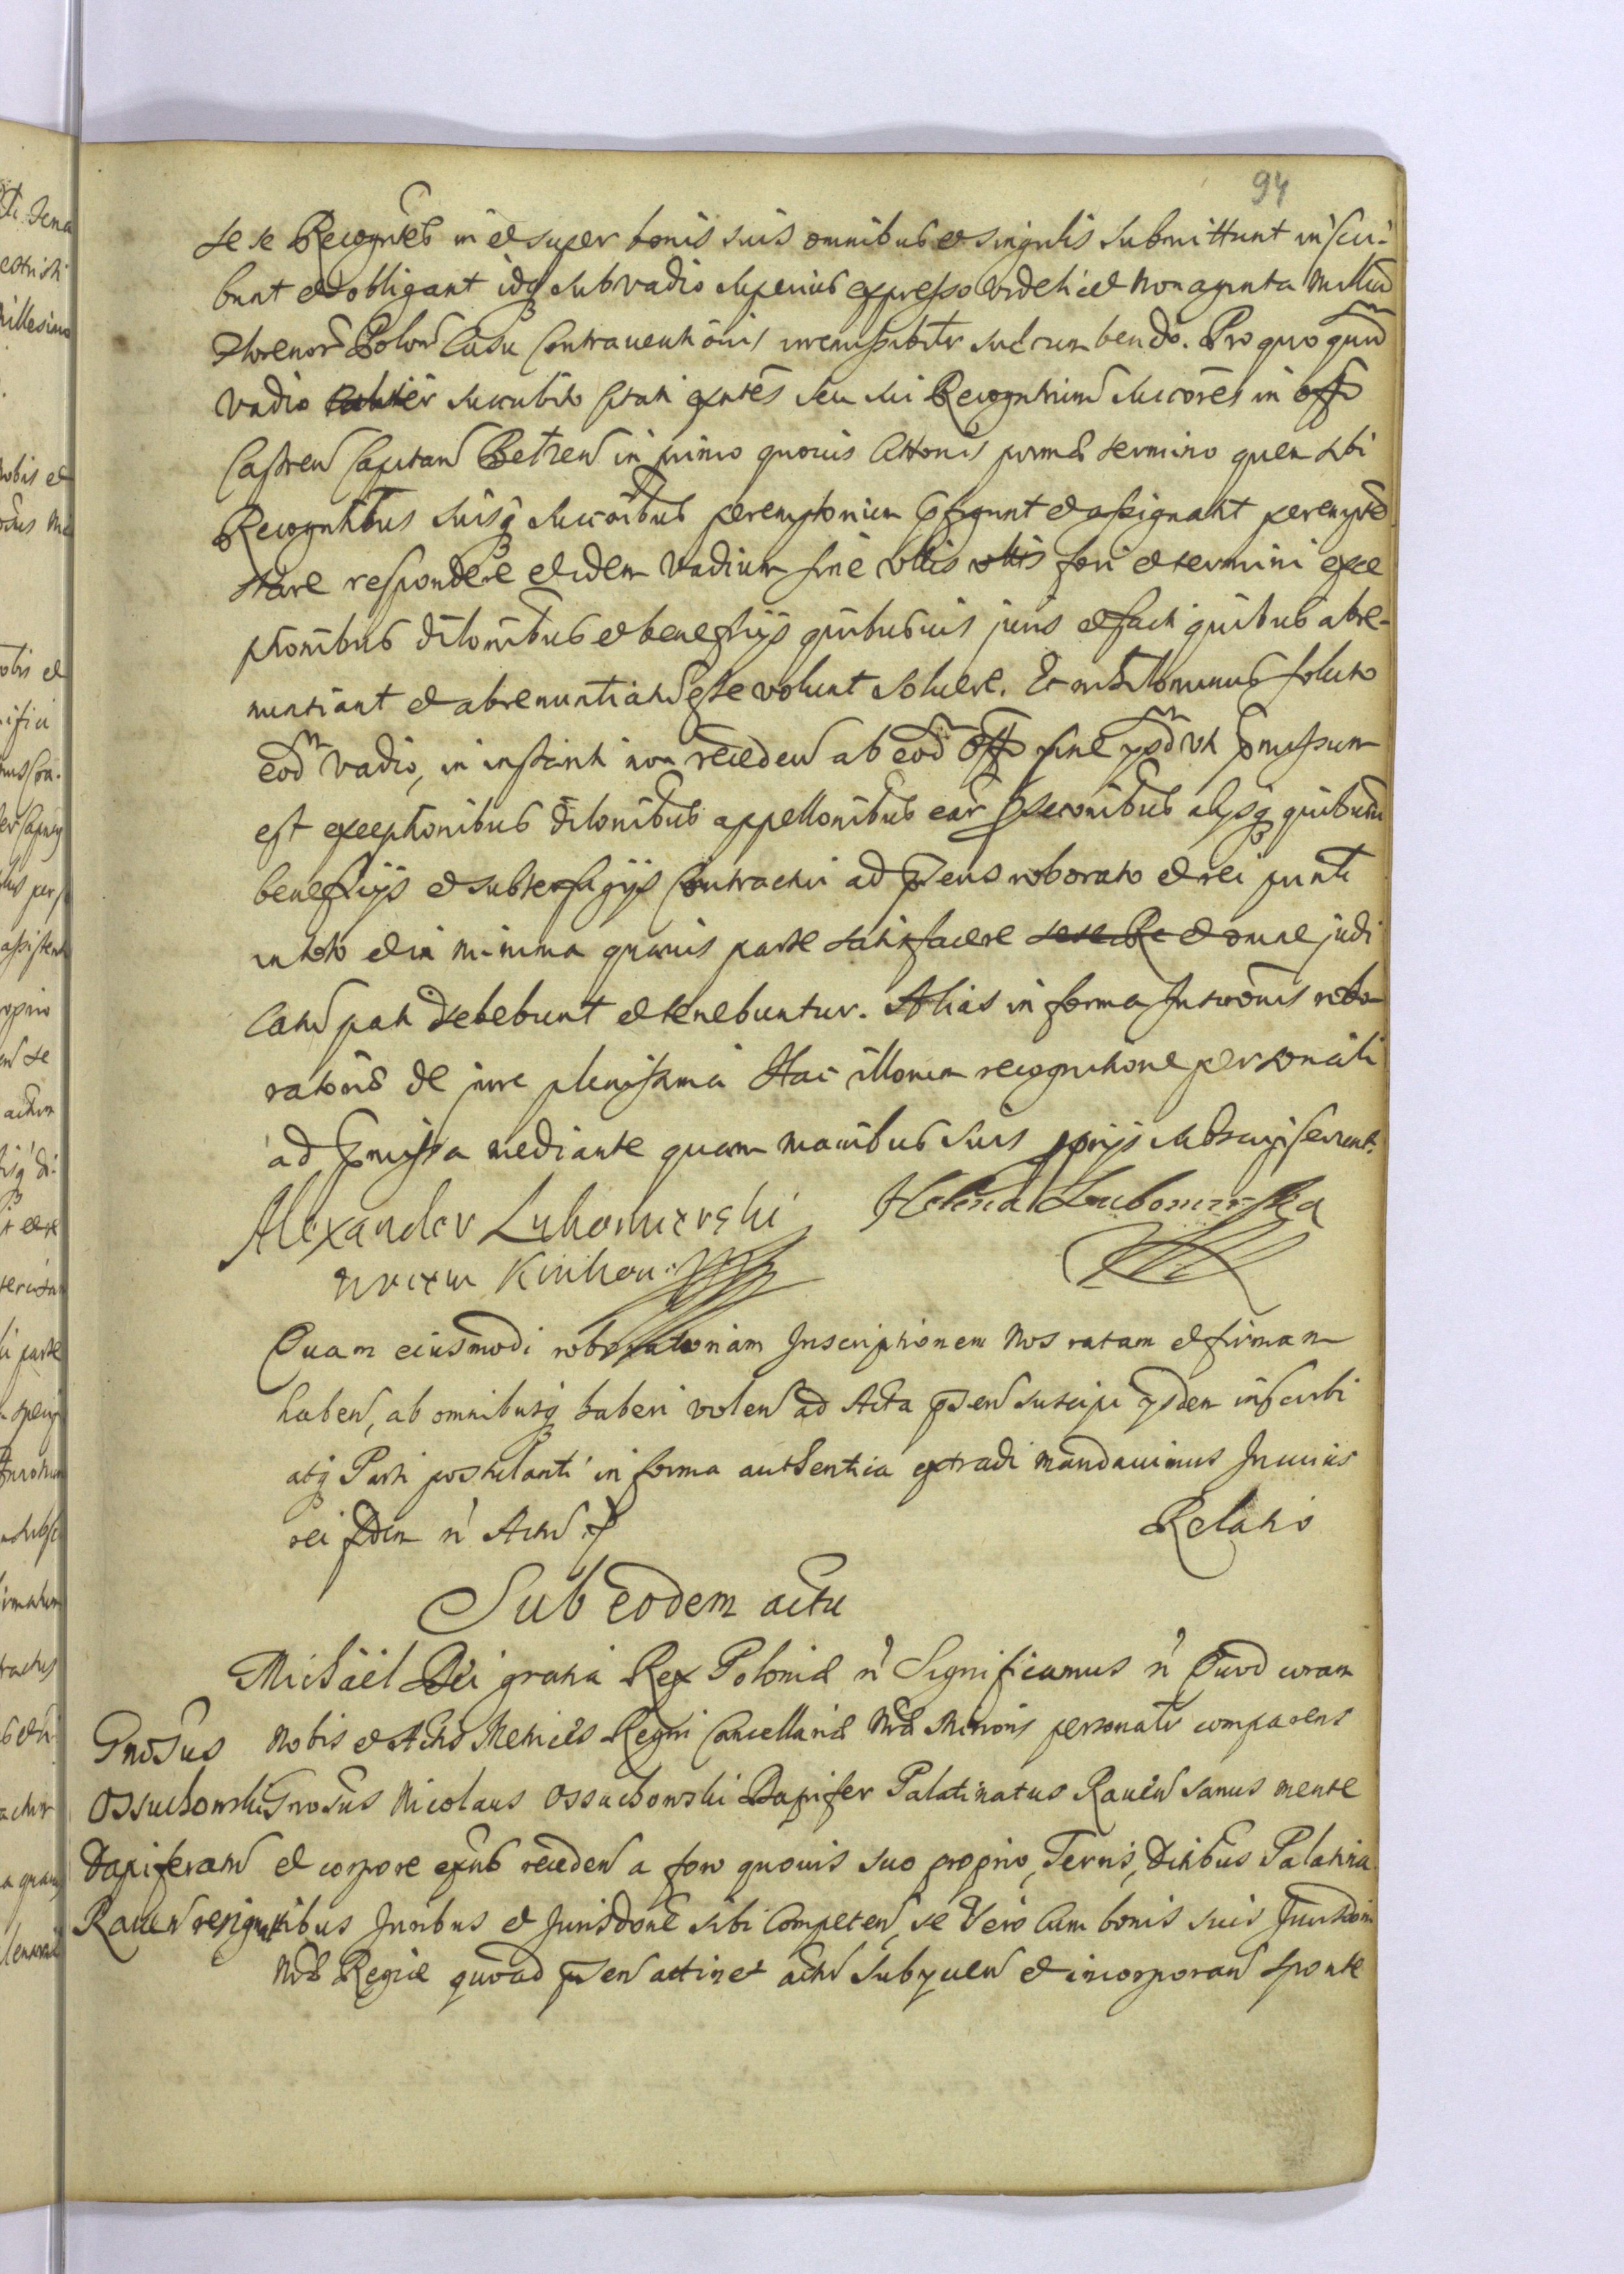 94
se se Recogntes in et super bonis suis omnibus et singulis submittunt inscri-
bunt et obligant idq sub vadio superius expresso videlicet Nonaginta Millium
Florenor Polon Casu Contraventionis irremissibiliter succumbendo. Pro quo quid
vadio succubito citati extes seu sui Recogntium succores in offo
Castren Capitan in primo quovis Cittonis pnms termino quem sibi
Recogntibus suisq succoribus peremptorium pfigunt et assignant perempte
stare respondere et idem vadium sine ullis fori et termini exce
ptionibus dilonibus et beneficijs quibusvis juris et facti quibus abre-
nuntiant et abrenuntiatu esse volunt solvere. Et nihilominus soluto
eod vadio, in instanti non receden ab eod offo sine ysd uti pmissum
est exceptionibus dilonibus appellonibus ear pseconibus alysq quibusvis
beneficijs et subterfugijs Contractui ad psens roborato et rei puncti
in toto et in minima quavis parte satisfacere et omne judi
catu pati debebunt et tenebuntur. Alias in forma Inscronis robo
ratoris de jure plenissima Hac illorum recognitione personali
ad pmissa mediante quam manibus suis pprijs subscripserunt.
Alexander Lubomierski Helena Lubomirska
Quam eiusmodi roboratoriam Inscriptionem Nos ratam et firmam
haben, ab omnibusq haberi volen ad Acta psen suscipi ysdem inscribi
atq Parti postulanti in forma authentica extradi mandavimus In cuius
rei fidem n Actu
Relatio
Sub eodem actu
Michael Dei gratia Rex Poloniæ n Significamus n Quod coram
Nobis et Actis Metrices Regni Cancellariæ Nræ Minoris personalr comparens
Gnosus Nicolaus Ossuchowski Dapifer Palatinatus Raven sanus mente
et corpore exns receden a foro quovis suo proprio, Terris, Ditibus Palatina
tibus Juribus et Jurisdone sibi Competen, se vero cum bonis suis Jurisdoni
Nræ Regiæ quoad psen attinet actu subycien et incorporan sponte
Gnosus
Ossuchowski
Dapiferatu
Raven resignat